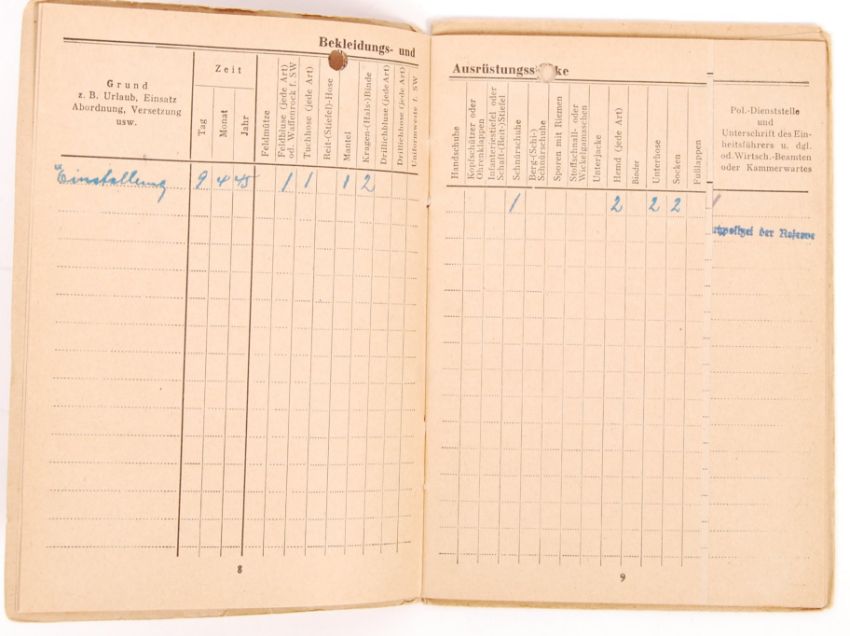 Bekleidungs- und
Grund
z. B. Urlaub, Einsatz
Abordnung, Versetzung
usw.
Zeit
Tag
Monat
Jahr
Feldmütze
Feldbluse (jede Art)
od. Waffenrock f. SW
Tuchhose (jede Art)
Reit-(Stiefel)-Hose
Mantel
Kragen-(Hals-)Binde
Drillichbluse (jede Art)
Drillichhose (jede Art)
f. SW
Einstellung 9 4 45 1 1 1 2
8
Ausrüstungss ke
Handschuhe
Kopfschützer oder
Ohrenklappen
Infanteriestiefel oder
Schaft-(Reit-)Stiefel
Schnürschuhe
Berg-(Schi-)
Schnürschuhe
Sporen mit Riemen
Stoffschnall- oder
Wickelgamaschen
Unterjacke
Hemd (jede Art)
Binder
Unterhose
Socken
Fußlappen
Pol.-Dienststelle
und
Unterschrift des Ein-
heitsführers u. dgl.
od. Wirtsch.-Beamten
oder Kammerwartes
1 2 2 2 1
der Reserve
9